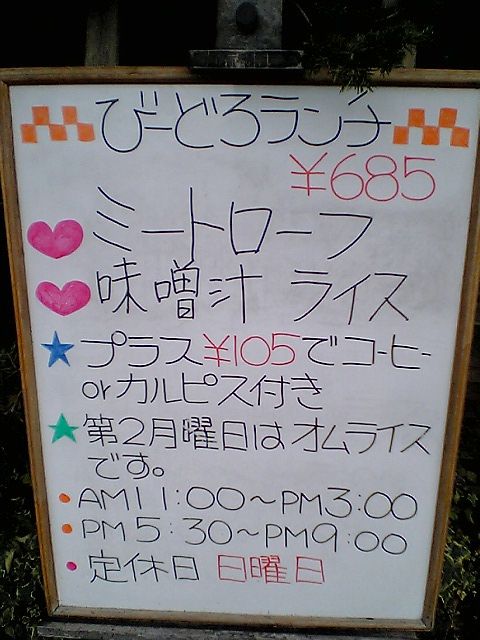 びーどろランチ
¥685
ミートローフ
味噌汁 ライス
プラス¥105でコーヒー
orカルピス付き
第2月曜日はオムライス
です。
AM11:00～PM3:00
PM5:30～PM9:00
定休日 日曜日